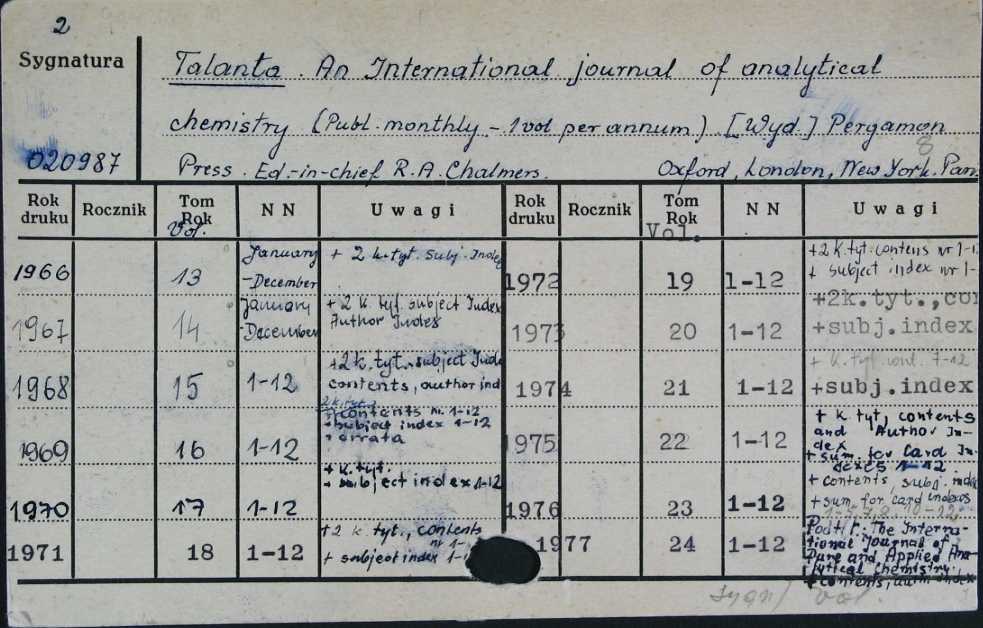 2
Sygnatura
Talanta. An International journal of analytical
chemistry (Publ. monthly - 1 vol per annum) [Wyd.] Pergamon
8
020987
Press. Ed.-in-chief R.A. Chalmers. Oxford, London, New York. Par.
Rok druku Rocznik Tom Rok NN Uwagi Rok druku Rocznik Tom Rok NN Uwagi
Vol. Vol.
1966 13 January - December + 2 k.tyt. Subj. Index
1967 14 January - December + 2 k. tyt. subject Index
Author Index
1968 15 1-12 +2 k. tyt. subject Inde
contents, author ind
1969 16 1-12 2 k. tyt.
+ contents nr. 1-12
+ subject index 1-12
+ errata
1970 17 1-12 + k. tyt.
+ subject index 1-12
1971 18 1-12 +2 k. tyt., contents
nr 1-
+ subject index 1-
1972 19 1-12 +2 k. tyt. contens nr 1-1
+ subject index nr 1-
1973 20 1-12 +2k.tyt.,con
+subj.index
1974 21 1-12 + k. tyt. cont. 7-12
+subj.index
1975 22 1-12 + k. tyt, contents
and Author In-
dex
+ sum. for Card In-
dexes 1-12.
1976 23 1-12 + contents, subj. index
+ sum. for card indexes
1977 24 1-12 Podtyt. The Interna-
tional Journal of
Pure and Applied Ana-
lytical Chemistry.
+ contents, auth. index
Sygn/ Vol.